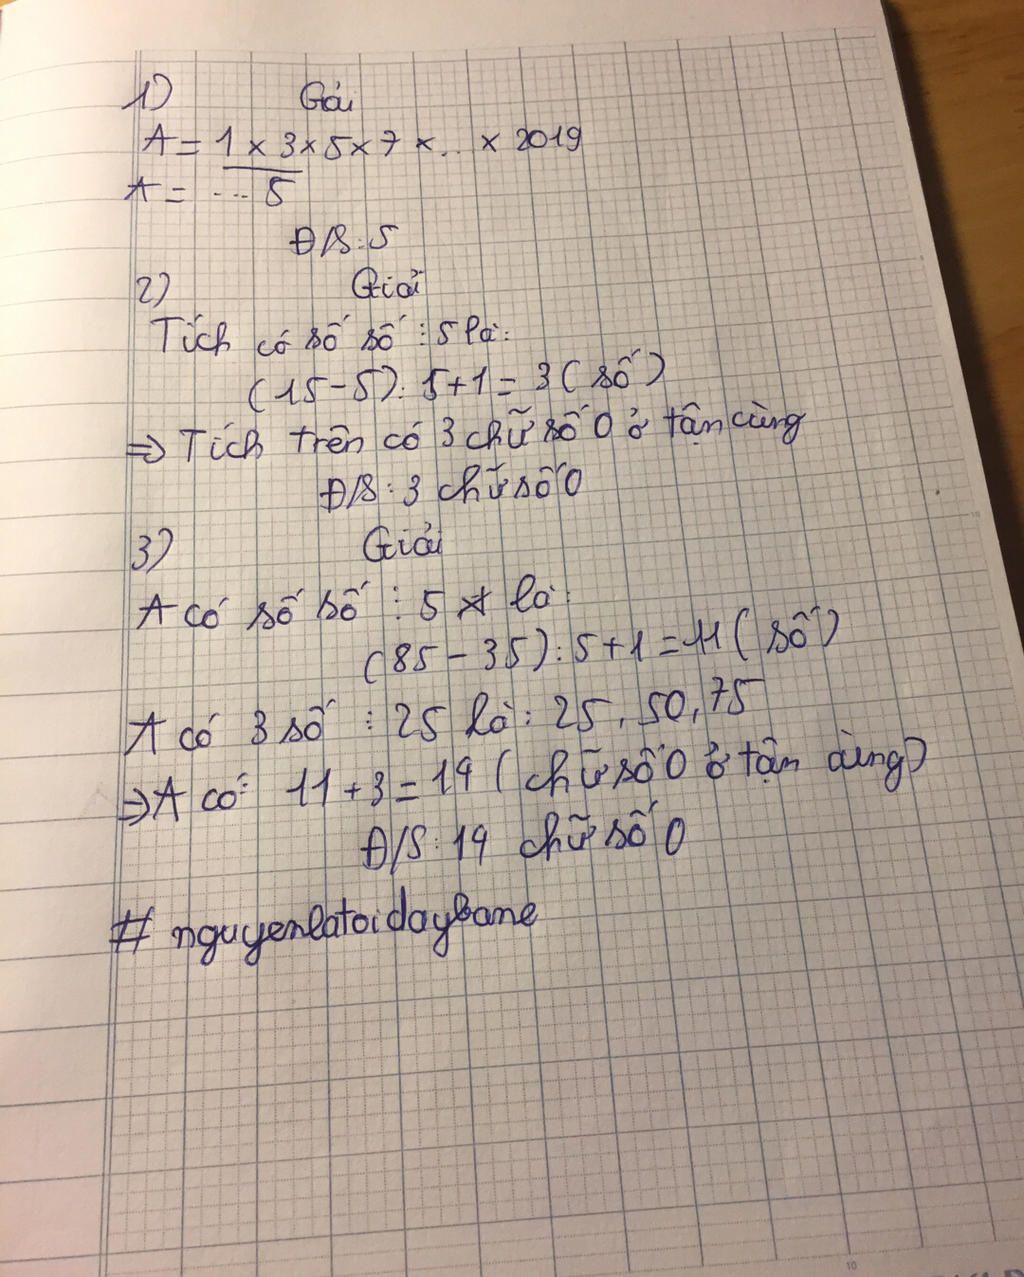 1) Giải
A = 1 × 3 × 5 × 7 × ... × 2019
A = ... 5
Đ/S: 5
2) Giải
Tích có số số ⋮ 5 là:
(15 - 5) : 5 + 1 = 3 (số)
⇒ Tích trên có 3 chữ số 0 ở tận cùng
Đ/S: 3 chữ số 0
3) Giải
A có số số ⋮ 5 là:
(85 - 35) : 5 + 1 = 11 (số)
A có 3 số ⋮ 25 là: 25, 50, 75
⇒ A có: 11 + 3 = 14 (chữ số 0 ở tận cùng)
Đ/S: 14 chữ số 0
# nguyenlatoidaybane
10